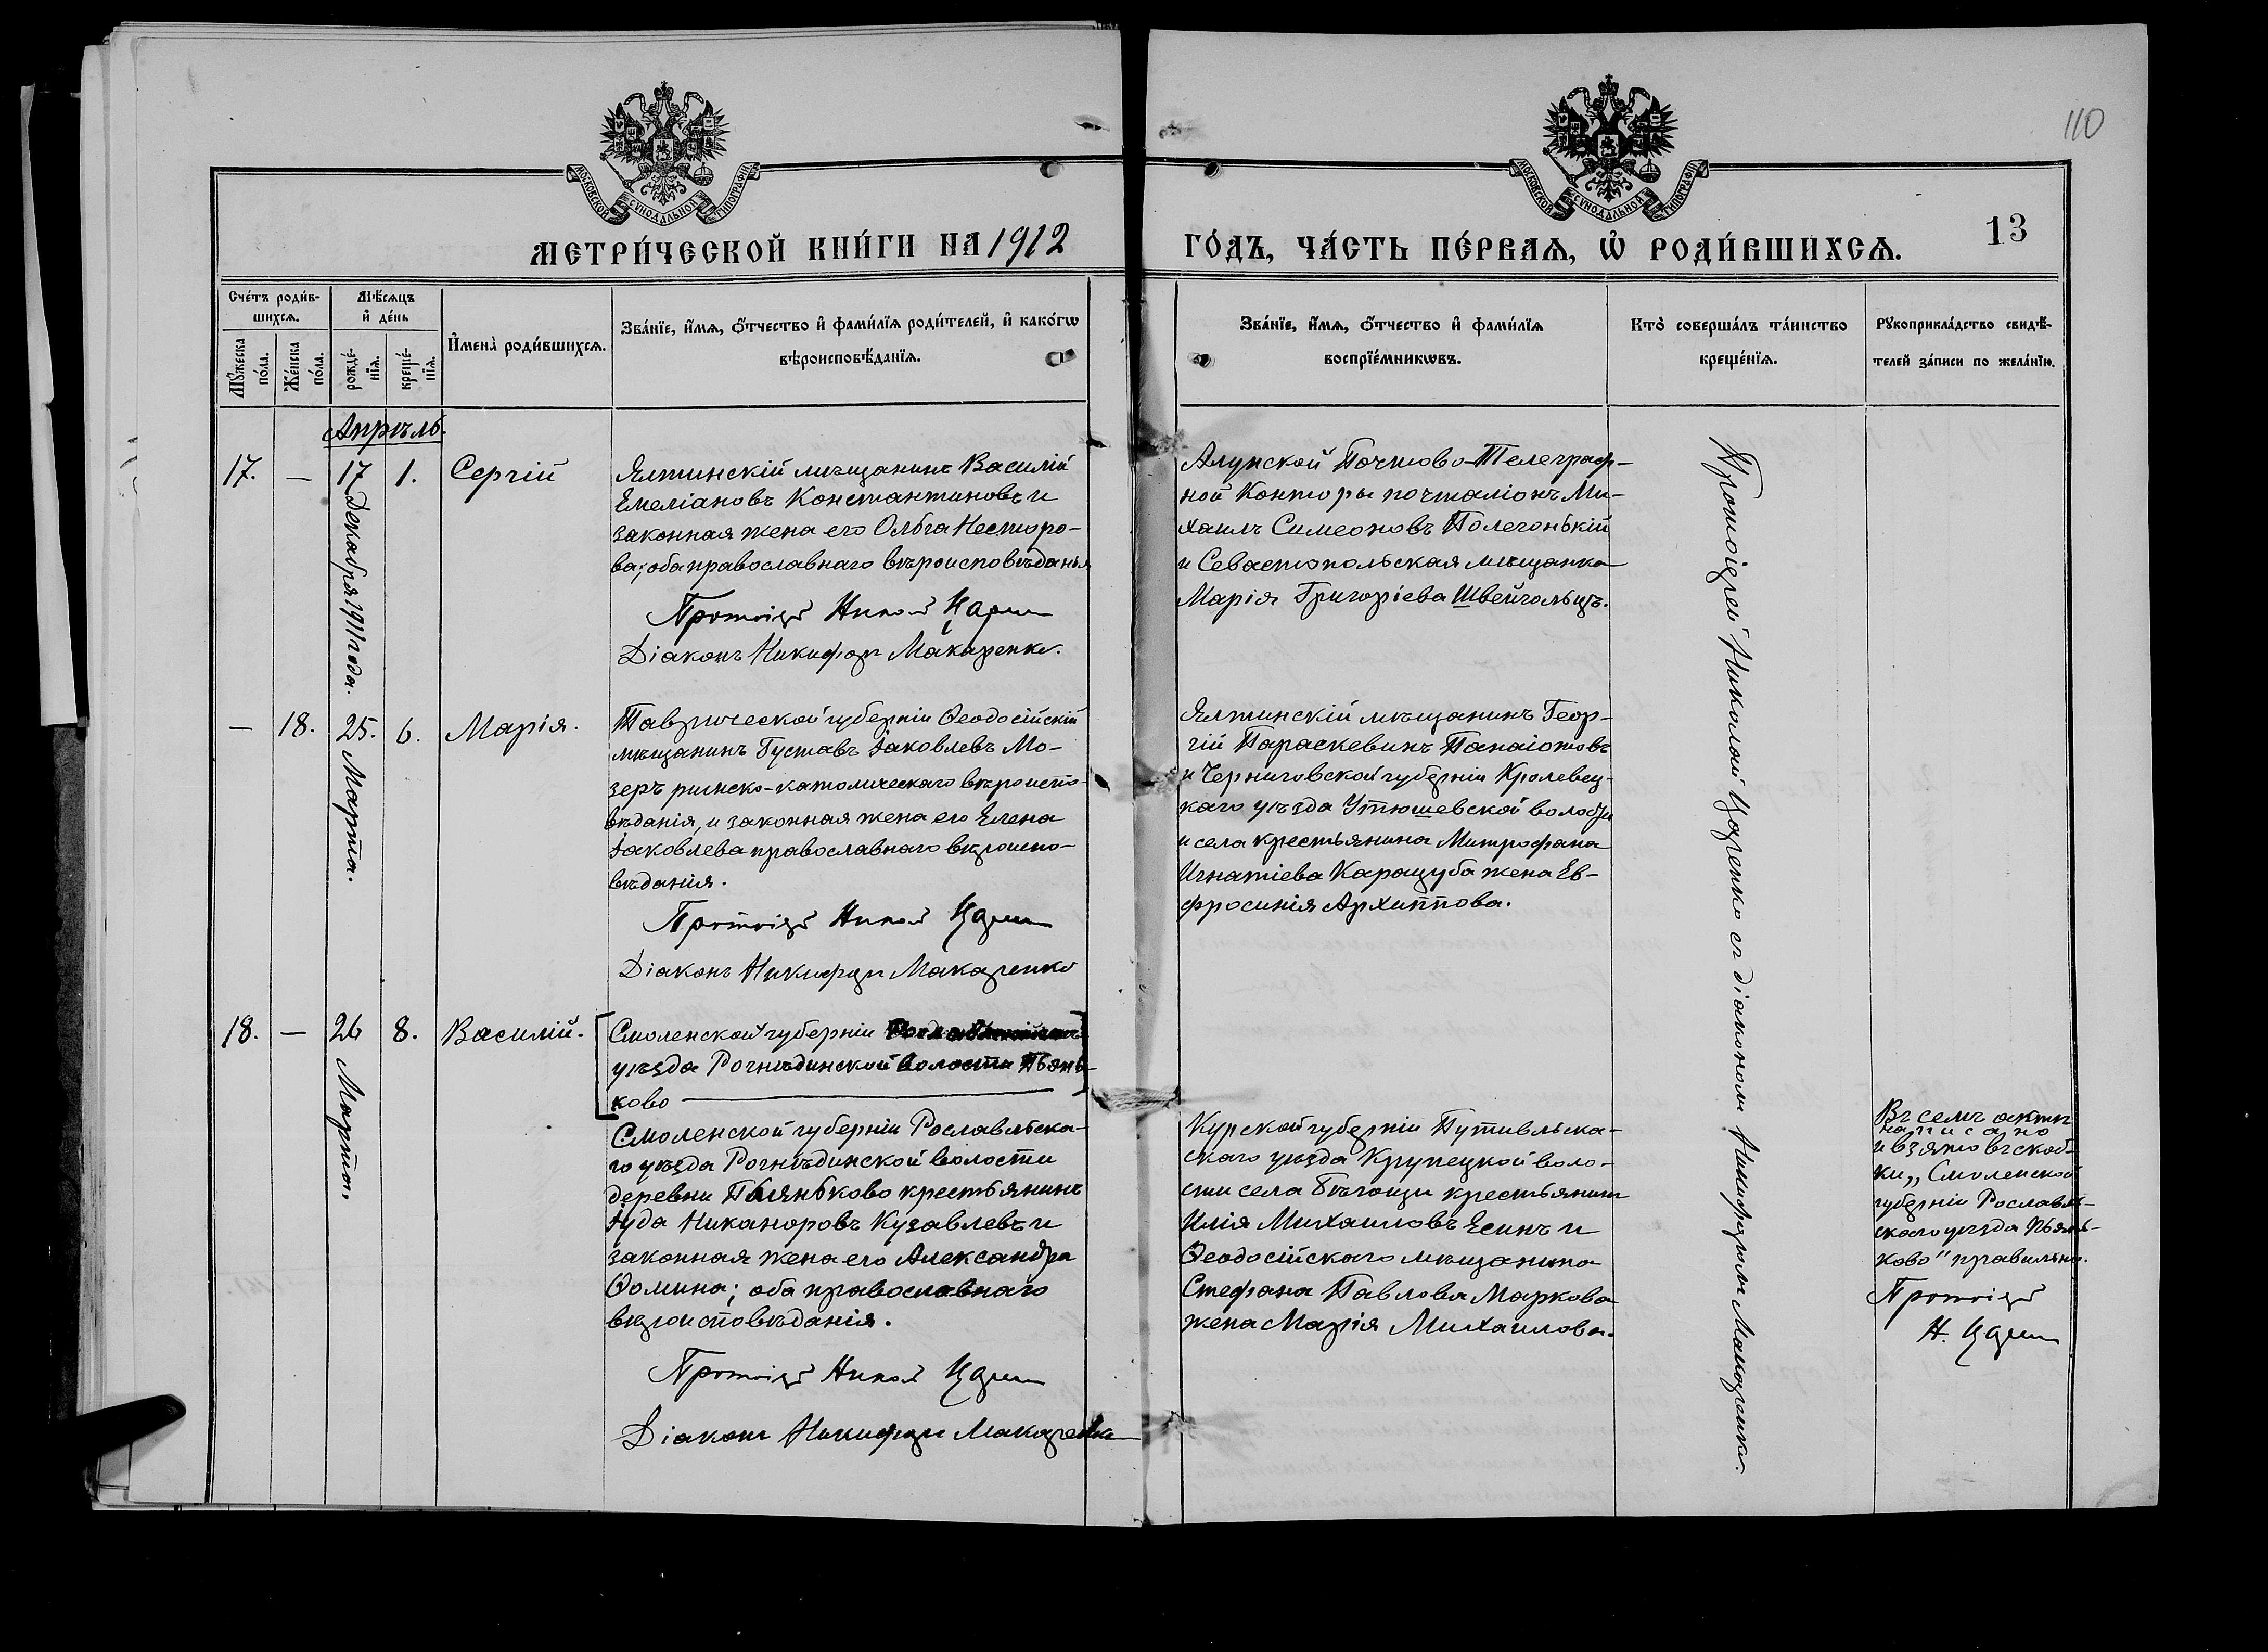 110
МОСКОВСКОЙ СѴНОДАЛЬНОЙ ТИПОГРАФІИ
МОСКОВСКОЙ СѴНОДАЛЬНОЙ ТИПОГРАФІИ
МЕТРИ́ЧЕСКОЙ КНИ́ГИ НА 1912
ГО́ДЪ, ЧА́СТЬ ПЕ́РВАѦ, Ѡ҆ РОДИ́ВШИХСѦ.
13
Сче́тъ роди́в-
шихсѧ.
Мѣ́сѧцъ
и҆ де́нь
Мꙋ́жеска
по́ла.
Же́нска
по́ла.
рожде́-
нїѧ.
креще́-
нїѧ.
И҆мена̀ роди́вшихсѧ.
Зва́нїе, и҆́мѧ, ѻ҆́тчество и҆ фами́лїѧ роди́телей, и҆ како́гѡ
вѣроисповѣ́данїѧ.
Зва́нїе, и҆́мѧ, ѻ҆́тчество и҆ фами́лїѧ
воспрїе́мникѡвъ.
Кто̀ соверша́лъ та́инство
креще́нїѧ.
Рꙋкоприкла́дство свидѣ́-
телей за́писи по жела́нїю.
Апрѣль.
17.
—
17 Декабря 1911 года.
1.
Сергій
Ялтинскій мѣщанинъ Василій
Емеліановъ Константиновъ и
законная жена его Ольга Несторо-
ва; оба православнаго вѣроисповѣданья
Протоіерей Никол Царен
Діаконъ Никифоръ Макаренко.
Алупской Почтово-Телеграф-
ной Конторы почталіонъ Ми-
хаилъ Симеоновъ Полегонькій
и Севастопольская мѣщанка
Марія Григоріева Швейгольцъ.
Протоіерей Николай Царенко съ діакономъ Никифоромъ Макаренко.
—
18.
25. Марта.
6.
Марія.
Таврической губерніи Ѳеодосійскій
мѣщанинъ Густавъ Іаковлевъ Мо-
зеръ римско-католическаго вѣроиспо-
вѣданія, и законная жена его Елена
Іаковлева православнаго вѣроиспо-
вѣданія.
Протоіерей Никол Царен
Діаконъ Никифоръ Макаренко
Ялтинскій мѣщанинъ Геор-
гій Параскевинъ Панаіотовъ
и Черниговской губерніи Кролевец-
каго уѣзда волости
и села крестьянина Митрофана
Игнатіева Карацуба жена Ев-
фросинія Архиппова.
18.
—
26 Марта.
8.
Василій.
[Смоленской губерніи
уѣзда Рогнѣдинской волости Пьянь-]
ково
Смоленской губерніи Рославльска-
го уѣзда Рогнѣдинской волости
деревни Пьяньково крестьянинъ
Іуда Никаноровъ Кузавлевъ и
законная жена его Александра
Ѳомина; оба православнаго
вѣроисповѣданія.
Протоіерей Никол Царен
Діаконъ Никифоръ Макаренко
Курской губерніи Путивльска-
скаго уѣзда Крупецкой воло-
сти села крестьянинъ
Илія Михаиловъ Есинъ и
Ѳеодосійскаго мѣщанина
Стефана Павлова Маркова
жена Марія Михаилова.
Въ семъ актѣ
написано
и взято въ скоб-
ки „Смоленской
губерніи Рославль-
скаго уѣзда Пьянь-
ково" правильно.
Протоіерей
Н. Царен